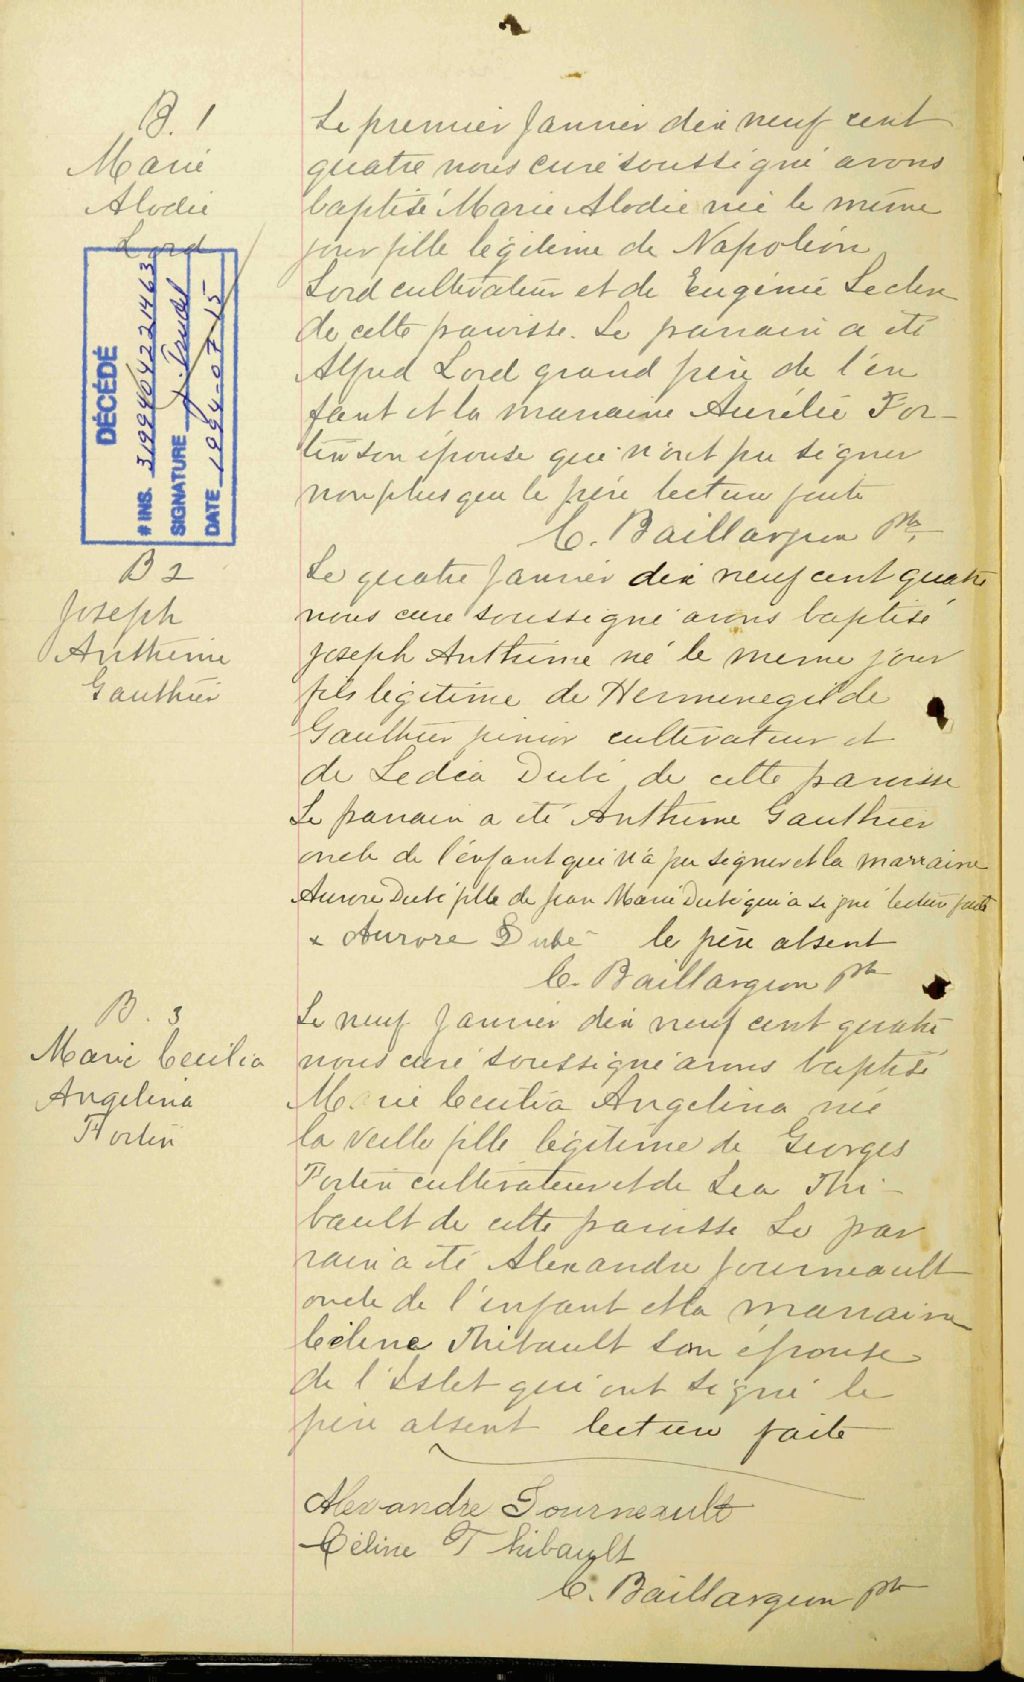 B. 1
Marie
Alodie
Lord
DÉCÉDÉ
# INS. 3199404221463
SIGNATURE
DATE 1994-07-15
Le premier Janvier dix neuf cent
quatre nous curé soussigné avons
baptisé Marie Alodie née le même
jour fille légitime de Napoléon
Lord cultivateur et de Eugénie Leclerc
de cette paroisse. Le parrain a été
Alfred Lord grand père de l'en
fant et la marraine Aurélie For-
tin son épouse qui n'ont pu signer
non plus que le père lecture faite
C. Baillargeon Ptre
B 2
Joseph
Anthime
Gauthier
Le quatre Janvier dix neuf cent quatre
nous curé soussigné avons baptisé
Joseph Anthime né le meme jour
fils légitime de Hermenegilde
Gauthier junior cultivateur et
de Ledia Dubé de cette paroisse
Le parrain a été Anthime Gauthier
oncle de l'enfant qui n'a pu signer et la marraine
Aurore Dubé fille de Jean Marie Dubé qui a signé lecture faite
x Aurore Dubé le père absent
C. Baillargeon Ptre
B. 3
Marie Cecilia
Angelina
Fortin
Le neuf Janvier dix neuf cent quatre
nous curé soussigné avons baptisé
Marie Cecilia Angelina née
la veille fille légitime de Georges
Fortin cultivateur et de Lea Thi-
bault de cette paroisse Le par
rain a été Alexandre Journeault
oncle de l'enfant et la marraine
Céline Thibault son épouse
de l'Islet qui ont signé le
père absent lecture faite
Alexandre Journeault
Céline Thibault
C. Baillargeon Ptre